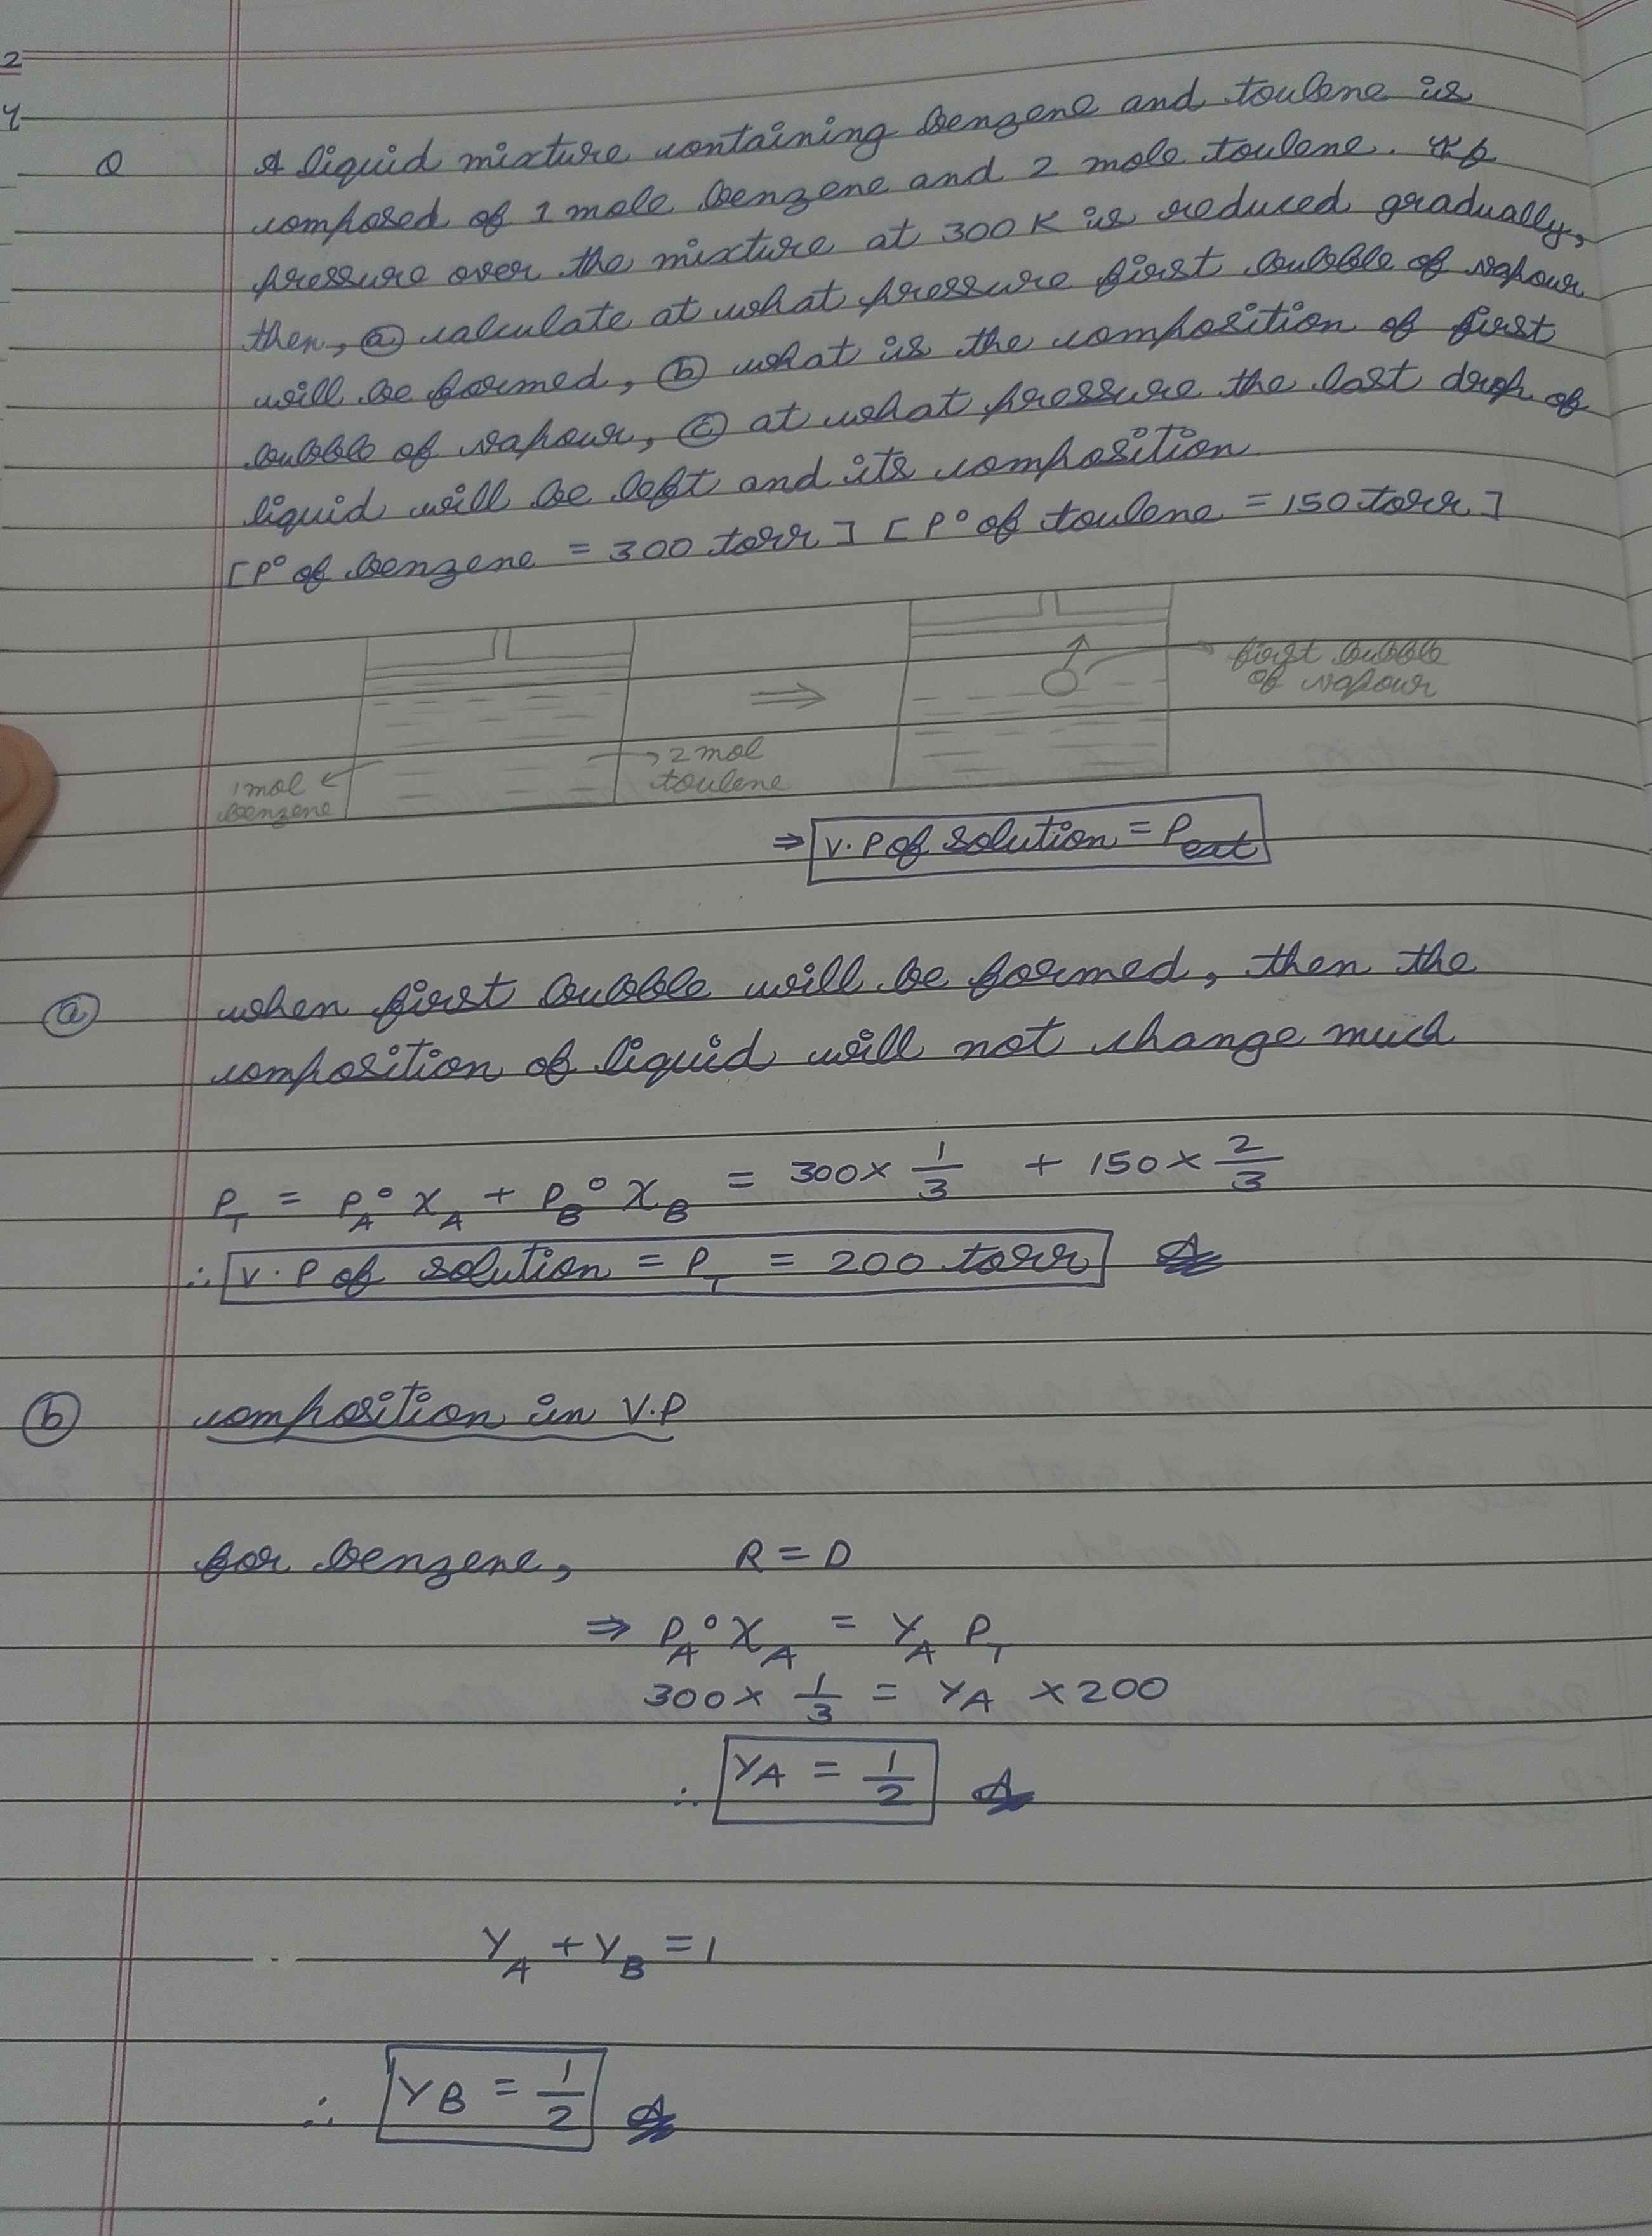 2
4
Q A liquid mixture containing benzene and toulene is
composed of 1 mole benzene and 2 mole toulene. If
pressure over the mixture at 300 K is reduced gradually,
then, ⓐ calculate at what pressure first bubble of vapour
will be formed, ⓑ what is the composition of first
bubble of vapour, ⓒ at what pressure the last drop of
liquid will be left and its composition.
[P° of benzene = 300 torr] [P° of toulene = 150 torr]
first bubble
of vapour
1 mol
benzene
2 mol
toulene
⇒ V.P of solution = P_ext
ⓐ when first bubble will be formed, then the
composition of liquid will not change much
P_T = P_A° X_A + P_B° X_B = 300 × 1/3 + 150 × 2/3
∴ V.P of solution = P_T = 200 torr
ⓑ composition in V.P
for benzene, R = D
⇒ P_A° X_A = Y_A P_T
300 × 1/3 = Y_A × 200
∴ Y_A = 1/2
Y_A + Y_B = 1
∴ Y_B = 1/2